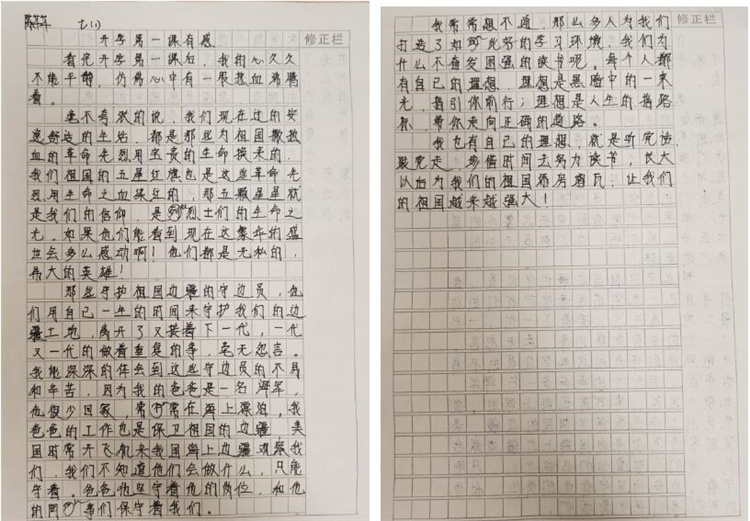 七(1)
修正栏
开学第一课有感
看完开学第一课后，我的心久久
不能平静，仿佛心中有一股热血沸腾
着。
毫不夸张的说，我们现在过的安
逸舒适的生活，都是那些为祖国撒热
血的革命先烈用宝贵的生命换来的，
我们祖国的五星红旗也是这些革命先
烈用生命之血染红的，那五颗星星就
是我们的信仰，是烈士们的生命之
光，如果他们能看到现在这繁华的盛
世会多么感动啊！他们都是无私的，
伟大的英雄！
那些守护祖国边疆的守边员，他
们用自己一生的时间来守护我们的边
疆土地，离开了又接着下一代，一代
又一代的做着重复的事，毫无怨言。
我能深深的体会到这些守边员的不易
和辛苦，因为我的爸爸是一名海军，
他很少回家，常常在海上漂泊，我
爸爸的工作也是保卫祖国的边疆 美
国时常开飞机来我国海上边疆观察我
们，我们不知道他们会做什么，只能
守着。爸爸他坚守着他的岗位，和他
的同事们保守着我们。
修正栏
我常常想不通，那么多人为我们
打造了如此好的学习环境，我们为
什么不奋发图强的读书呢。每个人都
有自己的理想，理想是黑暗中的一束
光，指引你前行；理想是人生的指路
标，带你走向正确的道路。
我也有自己的理想，就是听党话
跟党走，多借时间去努力读书，长大
以后为我们的祖国添房瓦，让我们
的祖国越来越强大！